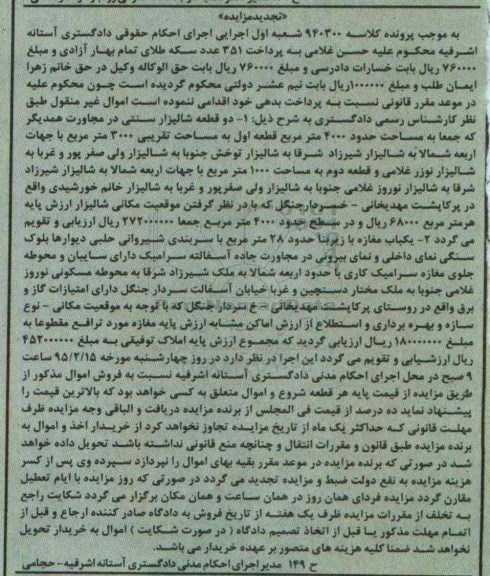 «تجدیدمزایده»
به موجب پرونده کلاسه ۹۴۰۳۰۰ شعبه اول اجرایی اجرای احکام حقوقی دادگستری آستانه
اشرفیه محکوم علیه حسن غلامی به پرداخت ۳۵۱ عدد سکه طلای تمام بهار آزادی و مبلغ
۷۶۰۰۰۰ ریال بابت خسارات دادرسی و مبلغ ۷۶۰۰۰۰ ریال بابت حق الوکاله وکیل در حق خانم زهرا
ایمان طلب و مبلغ ۱۰۰۰۰۰۰ریال بابت نیم عشر دولتی محکوم گردیده است چون محکوم علیه
در موعد مقرر قانونی نسبت به پرداخت بدهی خود اقدامی ننموده است اموال غیر منقول طبق
نظر کارشناس رسمی دادگستری به شرح ذیل: ۱- دو قطعه شالیزار سنتی در مجاورت همدیگر
که جمعا به مساحت حدود ۴۰۰۰ متر مربع قطعه اول به مساحت تقریبی ۳۰۰۰ متر مربع با جهات
اربعه شمالا به شالیزار شیرزاد شرقا به شالیزار توخش جنوبا به شالیزار ولی صفر پور و غربا به
شالیزار نوزر غلامی و قطعه دوم به مساحت ۱۰۰۰ متر مربع با جهات اربعه شمالا به شالیزار شیرزاد
شرقا به شالیزار نوروز غلامی جنوبا به شالیزار ولی صفرپور و غربا به شالیزار خانم خورشیدی واقع
در پرکاپشت مهدیخانی - خسردارجنگل که با در نظر گرفتن موقعیت مکانی شالیزار ارزش پایه
هرمتر مربع ۶۸۰۰۰ ریال و در سطح حدود ۴۰۰۰ متر مربع جمعا ۲۷۲۰۰۰۰۰۰ ریال ارزیابی و تقویم
می گردد ۲- یکباب مغازه با زیربنا حدود ۲۸ متر مربع با سربندی شیروانی حلبی دیوارها بلوک
سنگی نمای داخلی و نمای بیرونی در مجاورت جاده آسفالته سرامیک دارای سایبان و محوطه
جلوی مغازه سرامیک کاری با حدود اربعه شمالا به ملک شیرزاد شرقا به محوطه مسکونی نوروز
غلامی جنوبا به ملک مختار دستچین و غربا خیابان آسفالت سردار جنگل دارای امتیازات گاز و
برق واقع در روستای پرکاپشت مهدیخانی - خ سردار جنگل که با توجه به موقعیت مکانی - نوع
سازه و بهره برداری و استطلاع از ارزش اماکن مشابه ارزش پایه مغازه مورد ترافع مقطوعا به
مبلغ ۱۸۰۰۰۰۰۰۰ ریال ارزیابی گردید که مجموع ارزش پایه املاک توقیفی به مبلغ ۴۵۲۰۰۰۰۰۰
ریال ارزشیابی و تقویم می گردد این اجرا در نظر دارد در روز چهارشنبه مورخه ۹۵/۲/۱۵ ساعت
۹ صبح در محل اجرای احکام مدنی دادگستری آستانه اشرفیه نسبت به فروش اموال مذکور از
طریق مزایده از قیمت پایه هر قطعه شروع و اموال متعلق به کسی خواهد بود که بالاترین قیمت را
پیشنهاد نماید ده درصد از قیمت فی المجلس از برنده مزایده دریافت و الباقی وجه مزایده ظرف
مهلت قانونی که حداکثر یک ماه از تاریخ مزایده تجاوز نخواهد کرد از خریدار اخذ و اموال به
برنده مزایده طبق قانون و مقررات انتقال و چنانچه منع قانونی نداشته باشد تحویل داده خواهد
شد در صورتی که برنده مزایده در موعد مقرر بقیه بهای اموال را نپردازد سپرده وی پس از کسر
هزینه مزایده به نفع دولت ضبط و مزایده تجدید می گردد در صورتی که روز مزایده با ایام تعطیل
مقارن گردد مزایده فردای همان روز در همان ساعت و همان مکان برگزار می گردد شکایت راجع
به تخلف از مقررات مزایده ظرف یک هفته از تاریخ فروش به دادگاه صادر کننده ارجاع و قبل از
اتمام مهلت مذکور یا قبل از اتخاذ تصمیم دادگاه ( در صورت شکایت ) اموال به خریدار تحویل
نخواهد شد ضمنا کلیه هزینه های متصور بر عهده خریدار می باشد.
ح ۱۴۹ مدیر اجرای احکام مدنی دادگستری آستانه اشرفیه - حجامی